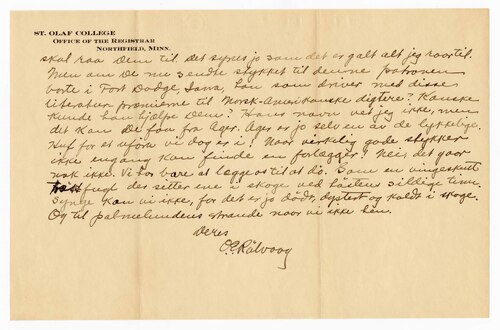 ST. OLAF COLLEGE
OFFICE OF THE REGISTRAR
NORTHFIELD, MINN.
skal raa Dem til. Det synes jo som det er galt alt jeg roor til.
Men om De nu sendte stykket til denne patronen
borte i Fort Dodge, Iowa, han som driver med disse
literatur præmierne til Norsk-Amerikanske digtere? Kanske
kunde han hjælpe Dem? Hans navn vet jeg ikke, men
det kan De faa fra Ager. Ager er jo selv en av de lykkelige.
Huf for et uføre vi dog er i! Naar virkelig gode stykker
ikke engang kan finde en forlægger! Nei, det gaar
nok ikke. Vi for bare at lægge os til at dø. Som en vingeskutt
fugl der setter ene i skoge ved høstens sildige time.
Synge kan vi ikke, for det er jo dødt, dystert og koldt i skoge.
Og til palmelundens strande naar vi ikke hen.
Deres
O.E. Rölvaag